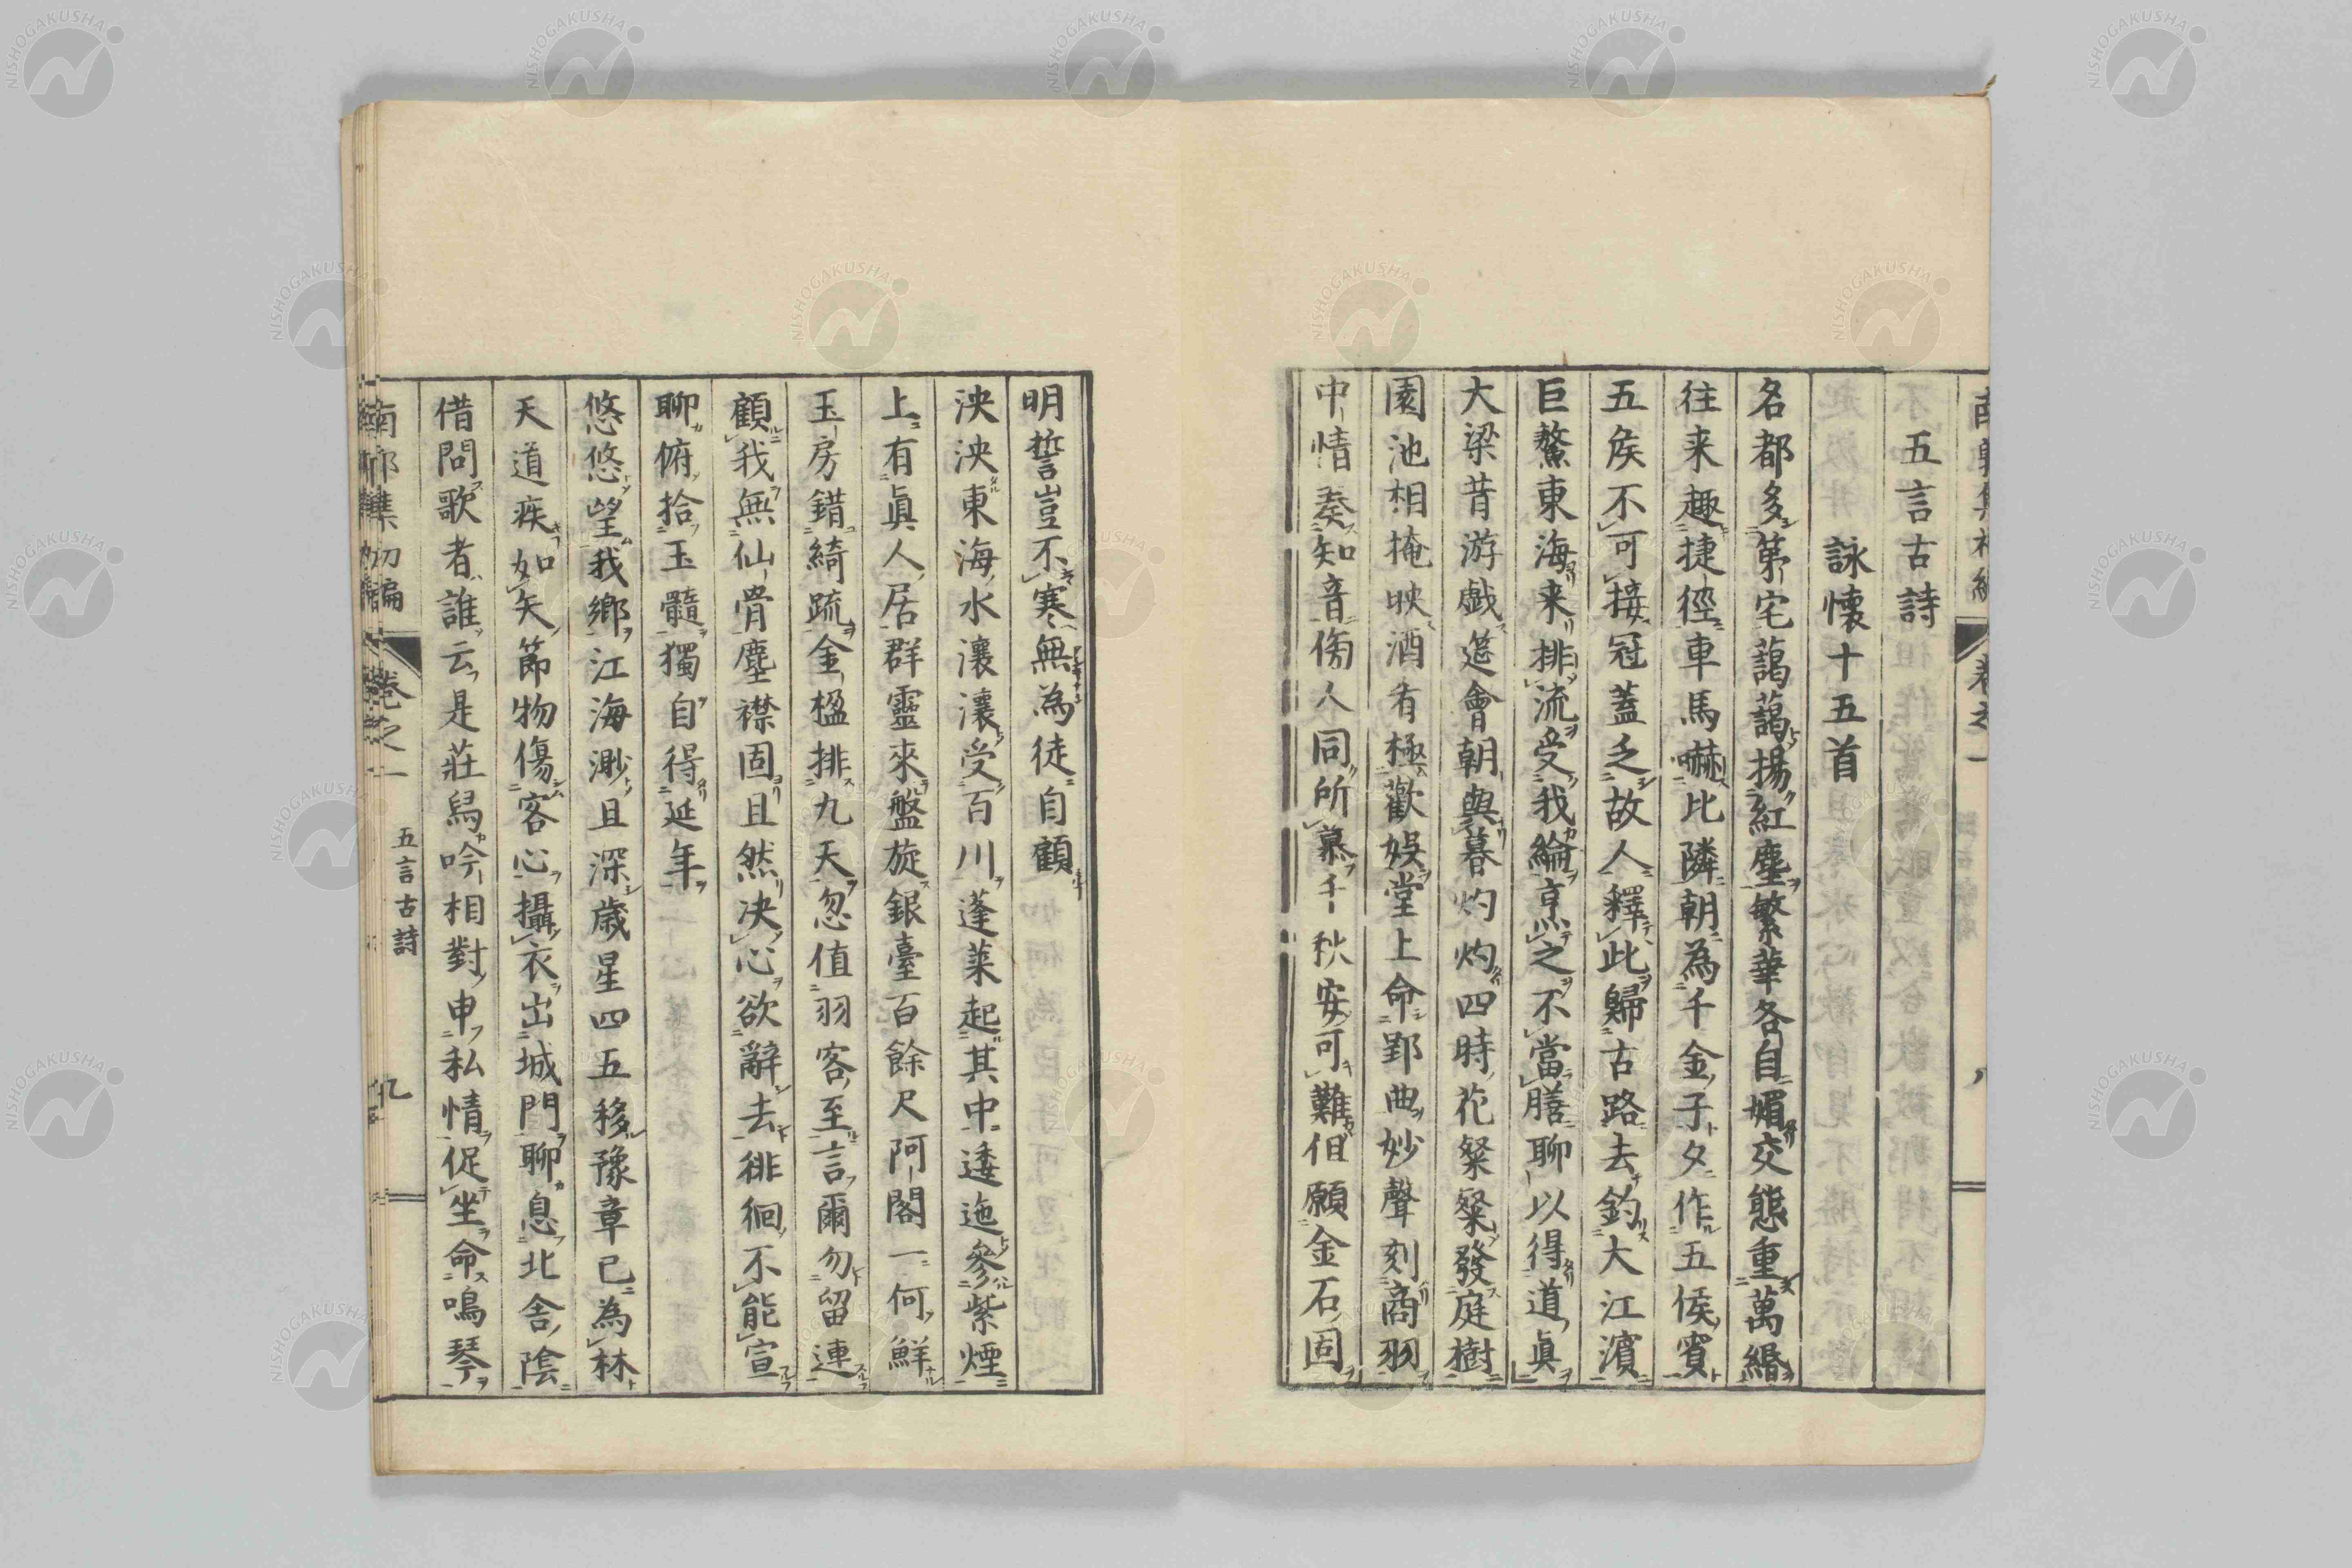 五言古詩
詠懷十五首
名都多第宅藹藹揚紅塵繁華各自媚交態重萬緡
往来趣捷徑車馬嚇比隣朝為千金子夕作五侯賓
五矦不可接冠蓋乏故人釋此歸古路去釣大江濱
巨鰲東海来排流受我綸烹之不當膳聊以得道真
大梁昔游戲筵會朝與暮灼灼四時花粲粲發庭樹
園池相掩映酒肴極歡娛堂上命郢曲妙聲刻商羽
中情奏知音傍人同所慕千秋安可難但願金石固
明誓豈不寒無為徒自顧
泱泱東海水瀼瀼受百川蓬萊起其中逶迤參紫煙
上有眞人居群靈來盤旋銀臺百餘尺阿閣一何鮮
玉房錯綺疏金楹排九天忽值羽客至言爾勿留連
顧我無仙骨塵襟固且然决心欲辭去徘徊不能宣
聊俯拾玉髓獨自得延年
悠悠望我鄉江海渺且深歲星四五移豫章已為林
天道疾如矢節物傷客心攝衣出城門聊息北舍陰
借問歌者誰云是莊舄吟相對申私情促坐命鳴琴
南郭集初編
卷之一
五言古詩
九
NISHOGAKUSHA